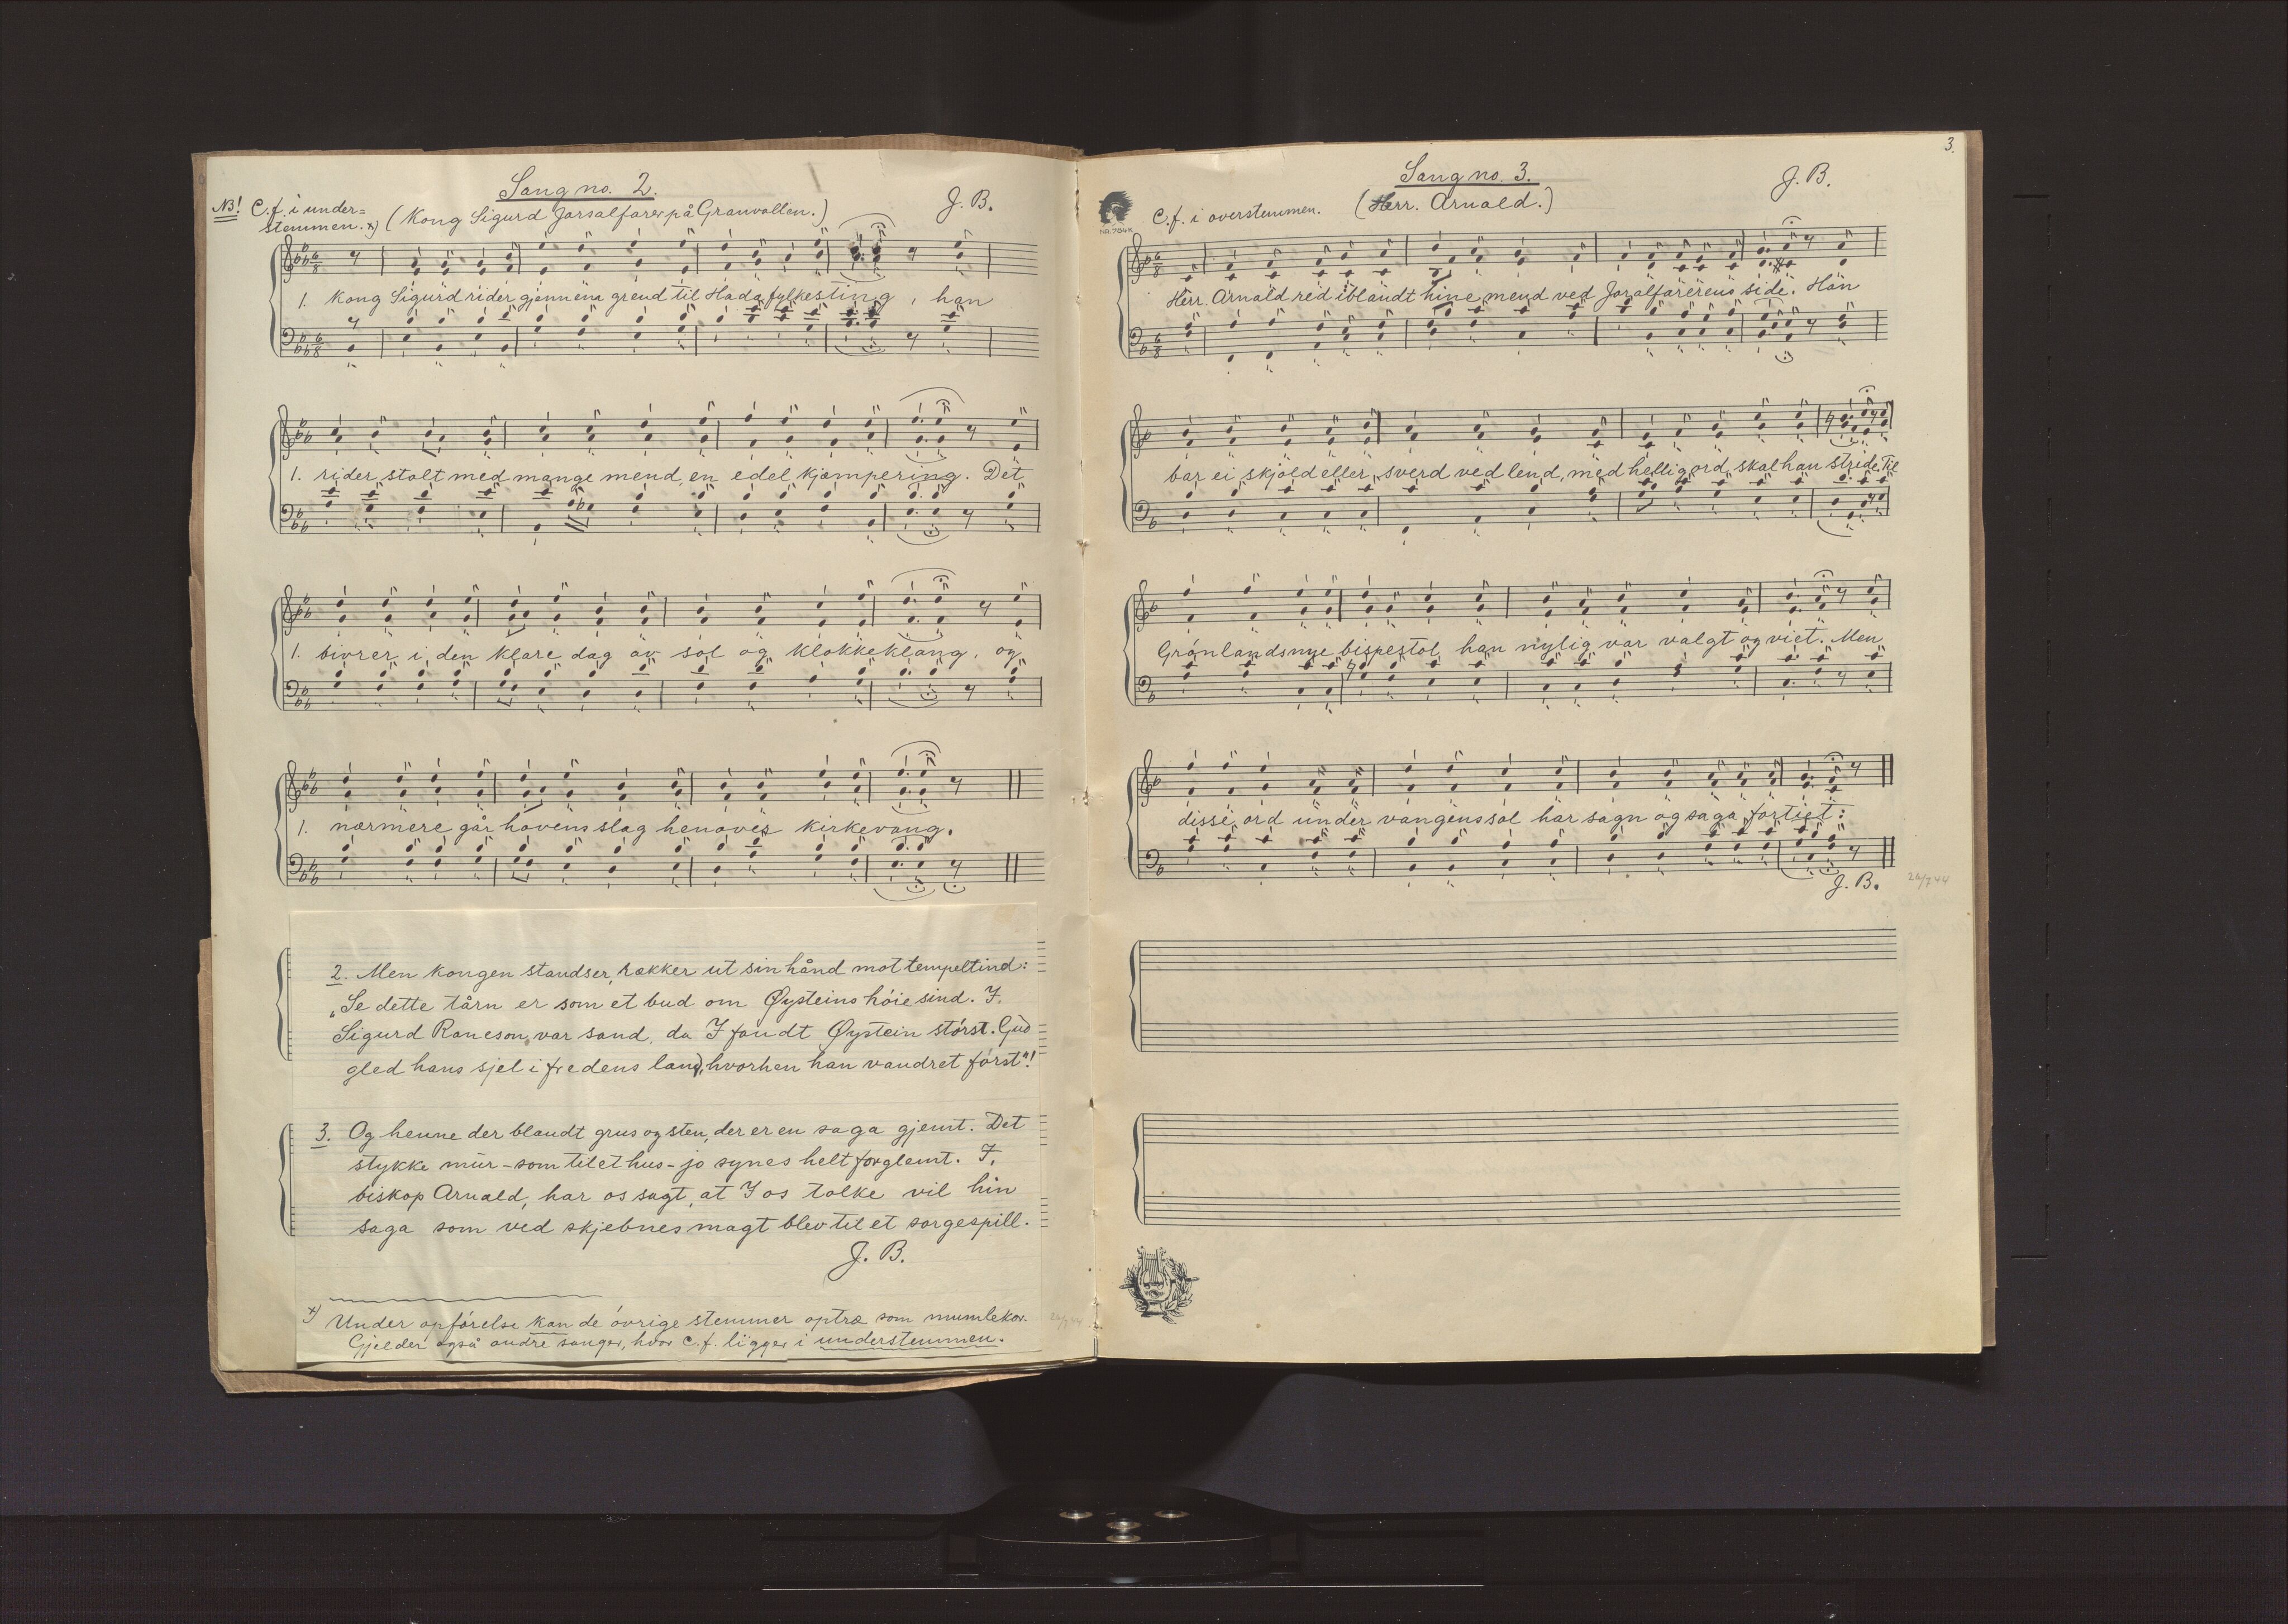 Sang no. 2.
NB! C.f. i under=
stemmen. x) (Kong Sigurd Jorsalfarer på Granvollen.) J. B.
1. Kong Sigurd rider gjennem grend til Hadafylkesting, han
1. rider stolt med mange mend, en edel kjæmpering. Det
1. bivrer i den klare dag av sol og klokkeklang, og
1. nærmere går hovens slag henover kirkevang.
2. Men kongen standser, rækker ut sin hånd mot tempeltind:
„Se dette tårn er som et bud om Øysteins höie sind. I,
Sigurd Raneson, var sand, da I fandt Øystein störst. Gud
gled hans sjel i fredens land, hvorhen han vandret först"!
3. Og henne der blandt grus og sten, der er en saga gjemt. Det
stykke mur – som til et hus – jo synes helt forglemt. I,
biskop Arnald, har os sagt, at I os tolke vil hin
saga som ved skjebnes magt blev til et sorgespill.
J. B.
x) Under opförelse kan de övrige stemmer optræ som mumlekor.
Gjelder også andre sanger, hvor c.f. ligger i understemmen.
3.
Sang no. 3.
J. B.
C.f. i overstemmen. (Herr. Arnald.)
No. 784 K
Herr. Arnald red iblandt hine mend ved Jorsalfarerens side. Han
bar ei skjold eller sverd ved lend, med hellig ord skal han stride. Til
Grönlands nye bispestol han nylig var valgt og viet. Men
disse ord under vangens sol har sagn og saga fortiet:
J. B.